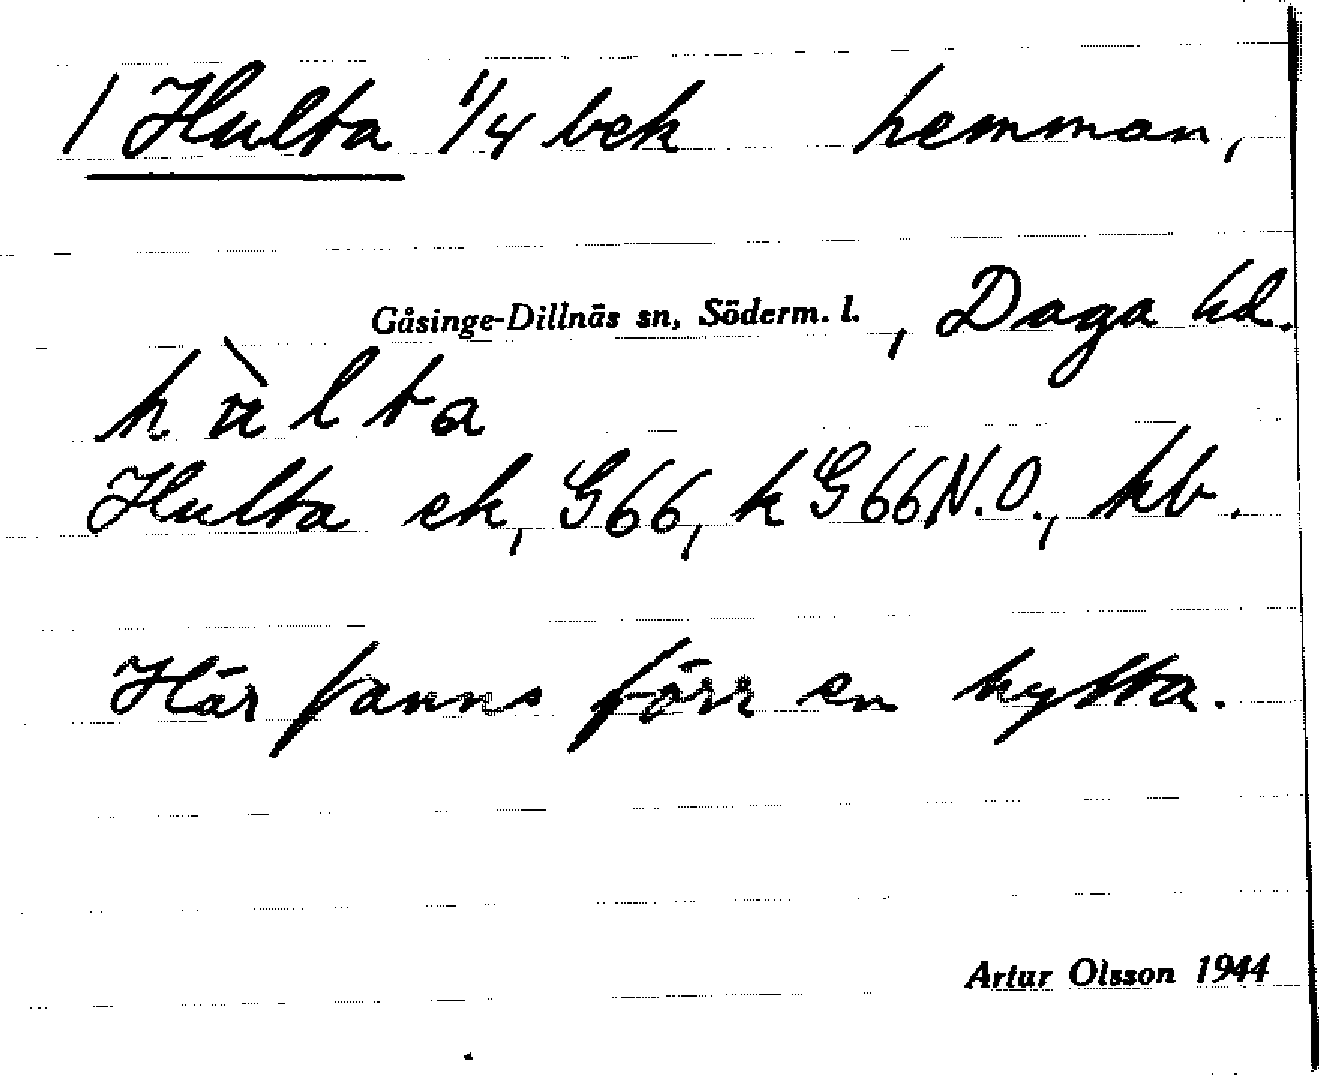 / Hulta 1/4 bek hemman,
Gåsinge-Dillnäs sn, Söderm. l. , Daga hd.
hùlta
Hulta ek, G66, k G66 N.O., kb.
Här fanns förr en hytta.
Artur Olsson 1944